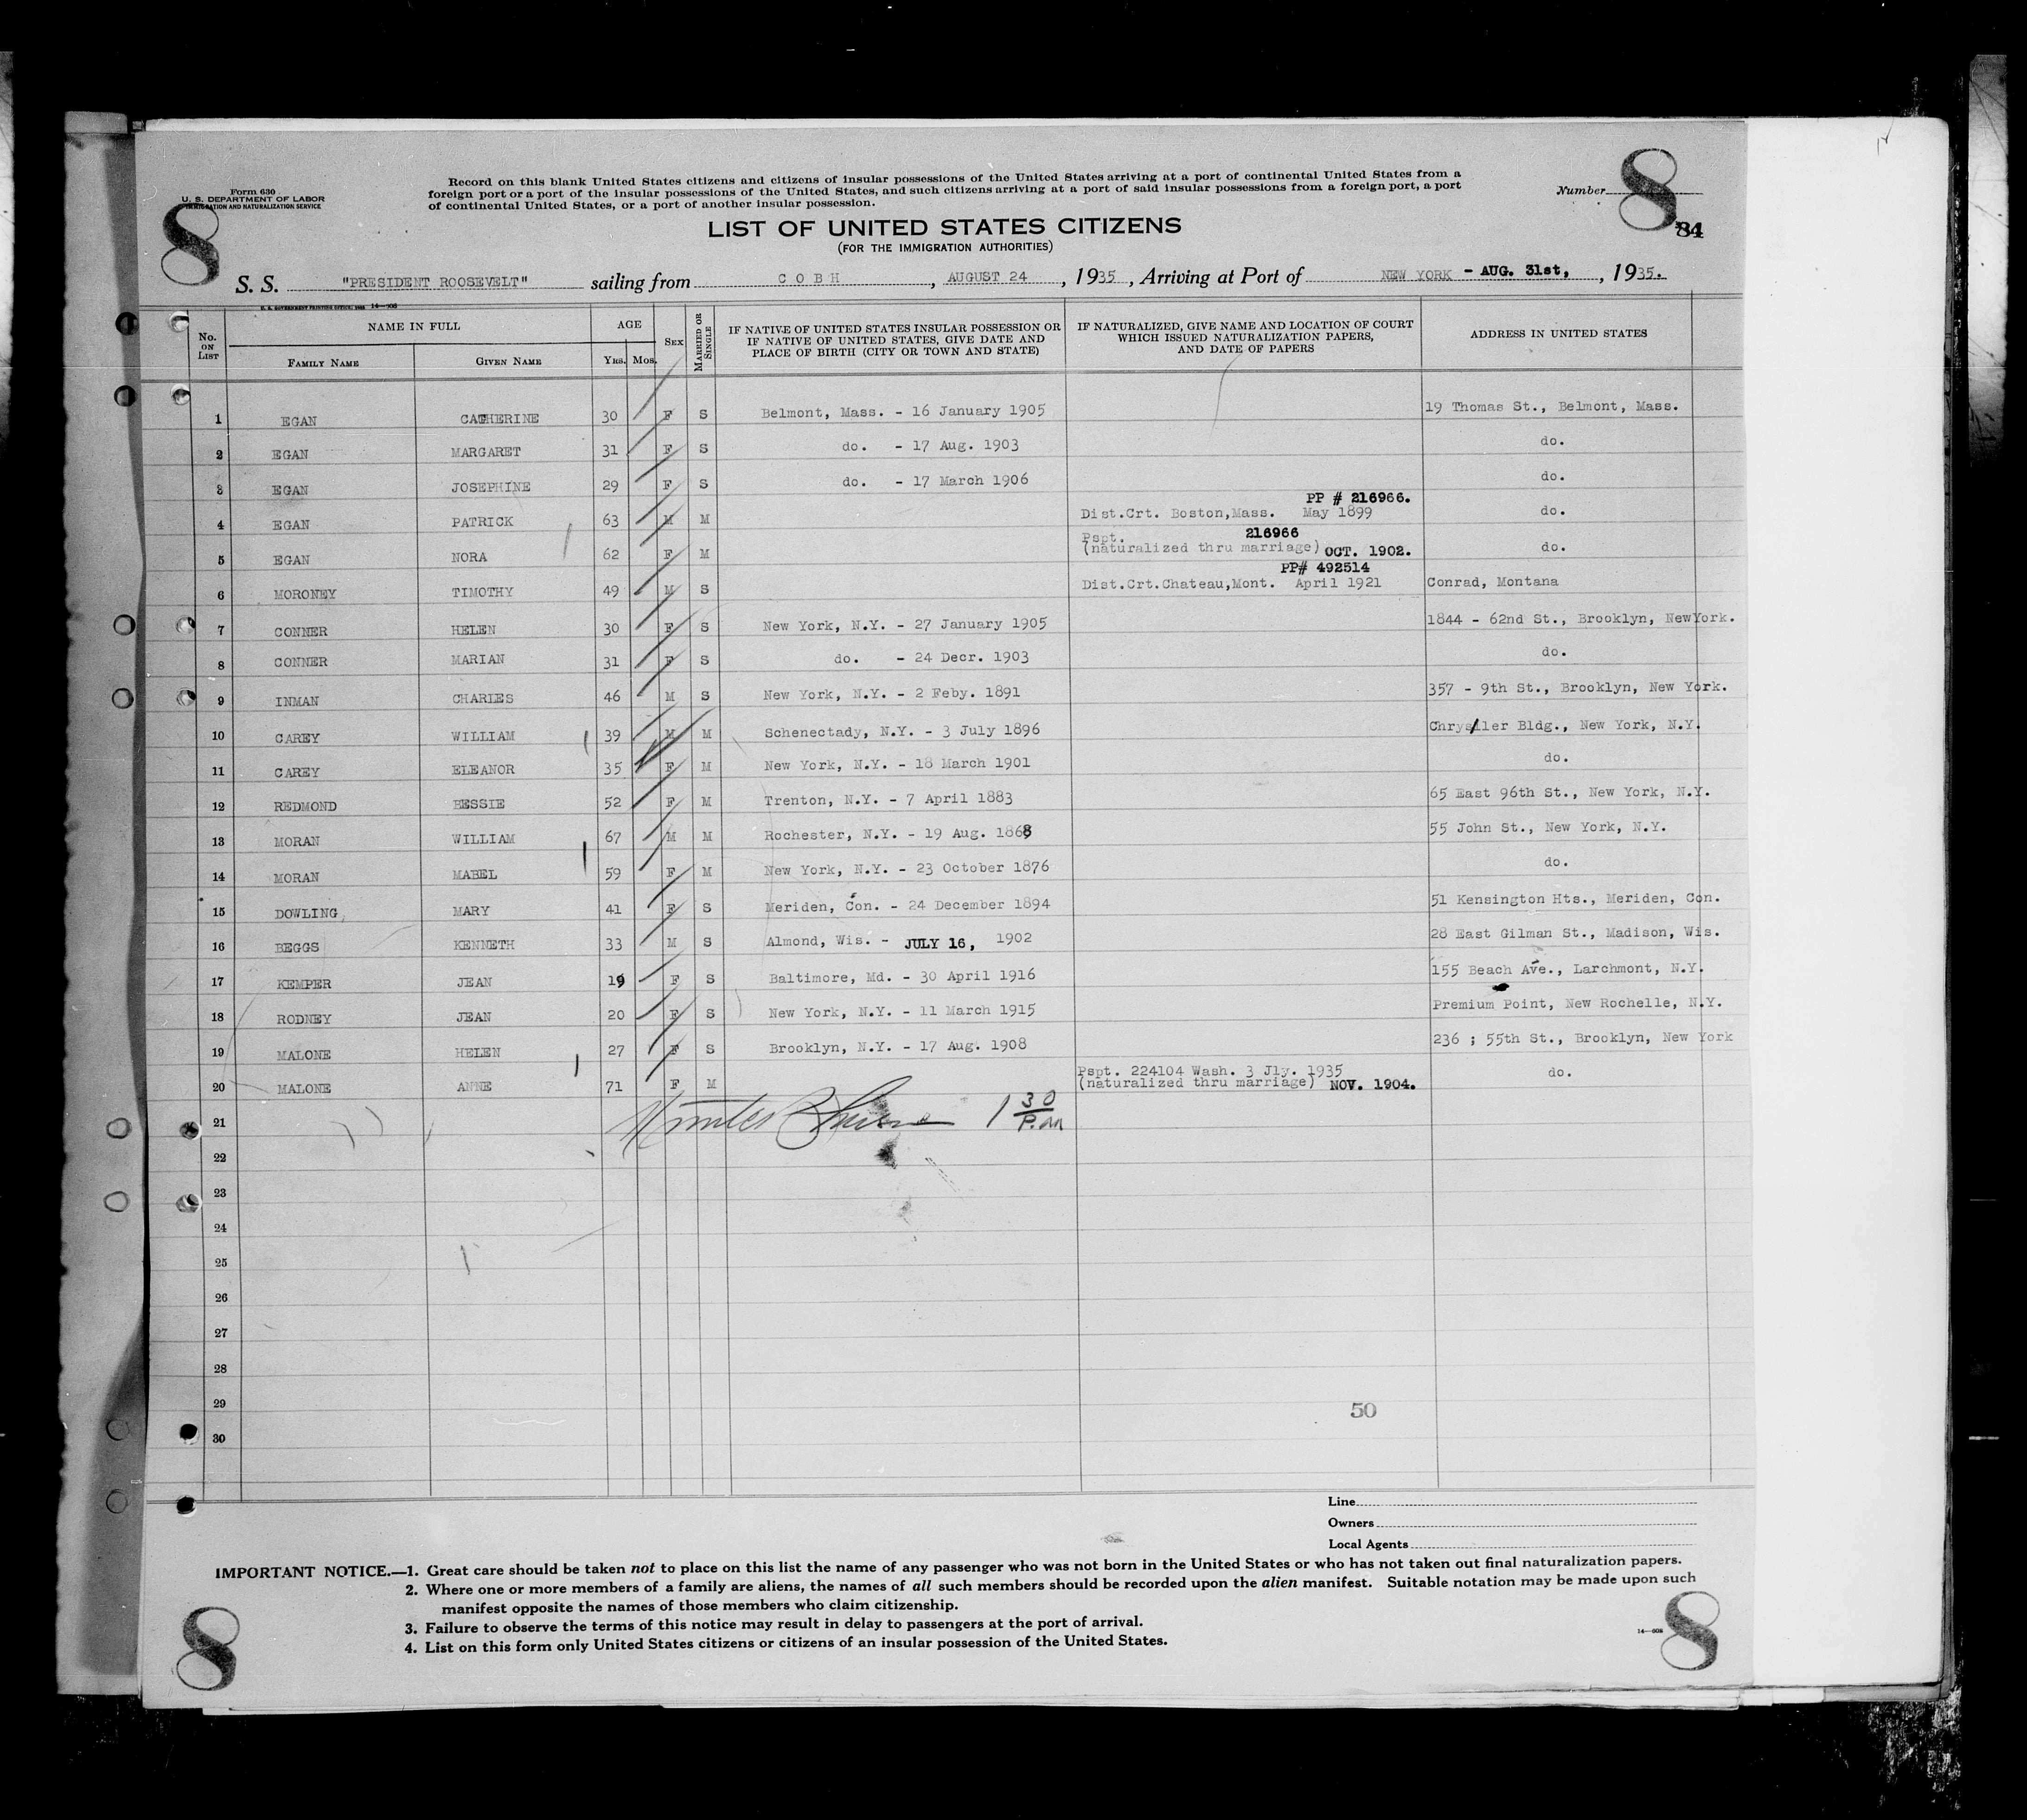 Form 630
U. S. DEPARTMENT OF LABOR
IMMIGRATION AND NATURALIZATION SERVICE
8
Record on this blank United States citizens and citizens of insular possessions of the United States arriving at a port of continental United States from a
foreign port or a port of the insular possessions of the United States, and such citizens arriving at a port of said insular possessions from a foreign port, a port
of continental United States, or a port of another insular possession.
Number 8
84
LIST OF UNITED STATES CITIZENS
(FOR THE IMMIGRATION AUTHORITIES)
S. S. "PRESIDENT ROOSEVELT" sailing from C O B H , AUGUST 24 , 1935 , Arriving at Port of NEW YORK - AUG. 31st, , 1935.
U. S. GOVERNMENT PRINTING OFFICE 14—608
No. ON LIST NAME IN FULL FAMILY NAME GIVEN NAME AGE YRS. MOS. SEX MARRIED OR SINGLE IF NATIVE OF UNITED STATES INSULAR POSSESSION OR IF NATIVE OF UNITED STATES, GIVE DATE AND PLACE OF BIRTH (CITY OR TOWN AND STATE) IF NATURALIZED, GIVE NAME AND LOCATION OF COURT WHICH ISSUED NATURALIZATION PAPERS, AND DATE OF PAPERS ADDRESS IN UNITED STATES
1 EGAN CATHERINE 30 F S Belmont, Mass. - 16 January 1905 19 Thomas St., Belmont, Mass.
2 EGAN MARGARET 31 F S do. - 17 Aug. 1903 do.
3 EGAN JOSEPHINE 29 F S do. - 17 March 1906 do.
PP # 216966.
4 EGAN PATRICK 63 M M Dist.Crt. Boston,Mass. May 1899 do.
Pspt. 216966
5 EGAN NORA 62 F M (naturalized thru marriage) OCT. 1902. do.
PP# 492514
6 MORONEY TIMOTHY 49 M S Dist.Crt.Chateau,Mont. April 1921 Conrad, Montana
7 CONNER HELEN 30 F S New York, N.Y. - 27 January 1905 1844 - 62nd St., Brooklyn, NewYork.
8 CONNER MARIAN 31 F S do. - 24 Decr. 1903 do.
9 INMAN CHARLES 46 M S New York, N.Y. - 2 Feby. 1891 357 - 9th St., Brooklyn, New York.
10 CAREY WILLIAM 39 M M Schenectady, N.Y. - 3 July 1896 Chrysller Bldg., New York, N.Y.
11 CAREY ELEANOR 35 F M New York, N.Y. - 18 March 1901 do.
12 REDMOND BESSIE 52 F M Trenton, N.Y. - 7 April 1883 65 East 96th St., New York, N.Y.
13 MORAN WILLIAM 67 M M Rochester, N.Y. - 19 Aug. 1868 55 John St., New York, N.Y.
14 MORAN MABEL 59 F M New York, N.Y. - 23 October 1876 do.
15 DOWLING MARY 41 F S Meriden, Con. - 24 December 1894 51 Kensington Hts., Meriden, Con.
16 BEGGS KENNETH 33 M S Almond, Wis. - JULY 16, 1902 28 East Gilman St., Madison, Wis.
17 KEMPER JEAN 19 F S Baltimore, Md. - 30 April 1916 155 Beach Ave., Larchmont, N.Y.
18 RODNEY JEAN 20 F S New York, N.Y. - 11 March 1915 Premium Point, New Rochelle, N.Y.
19 MALONE HELEN 27 F S Brooklyn, N.Y. - 17 Aug. 1908 236 ; 55th St., Brooklyn, New York
Pspt. 224104 Wash. 3 Jly. 1935
20 MALONE ANNE 71 F M (naturalized thru marriage) NOV. 1904. do.
21 1 30 P.M
22
23
24
25
26
27
28
29
50
30
Line
Owners
Local Agents
IMPORTANT NOTICE.—1. Great care should be taken not to place on this list the name of any passenger who was not born in the United States or who has not taken out final naturalization papers.
2. Where one or more members of a family are aliens, the names of all such members should be recorded upon the alien manifest. Suitable notation may be made upon such
manifest opposite the names of those members who claim citizenship.
3. Failure to observe the terms of this notice may result in delay to passengers at the port of arrival.
4. List on this form only United States citizens or citizens of an insular possession of the United States.
14—608
8
8